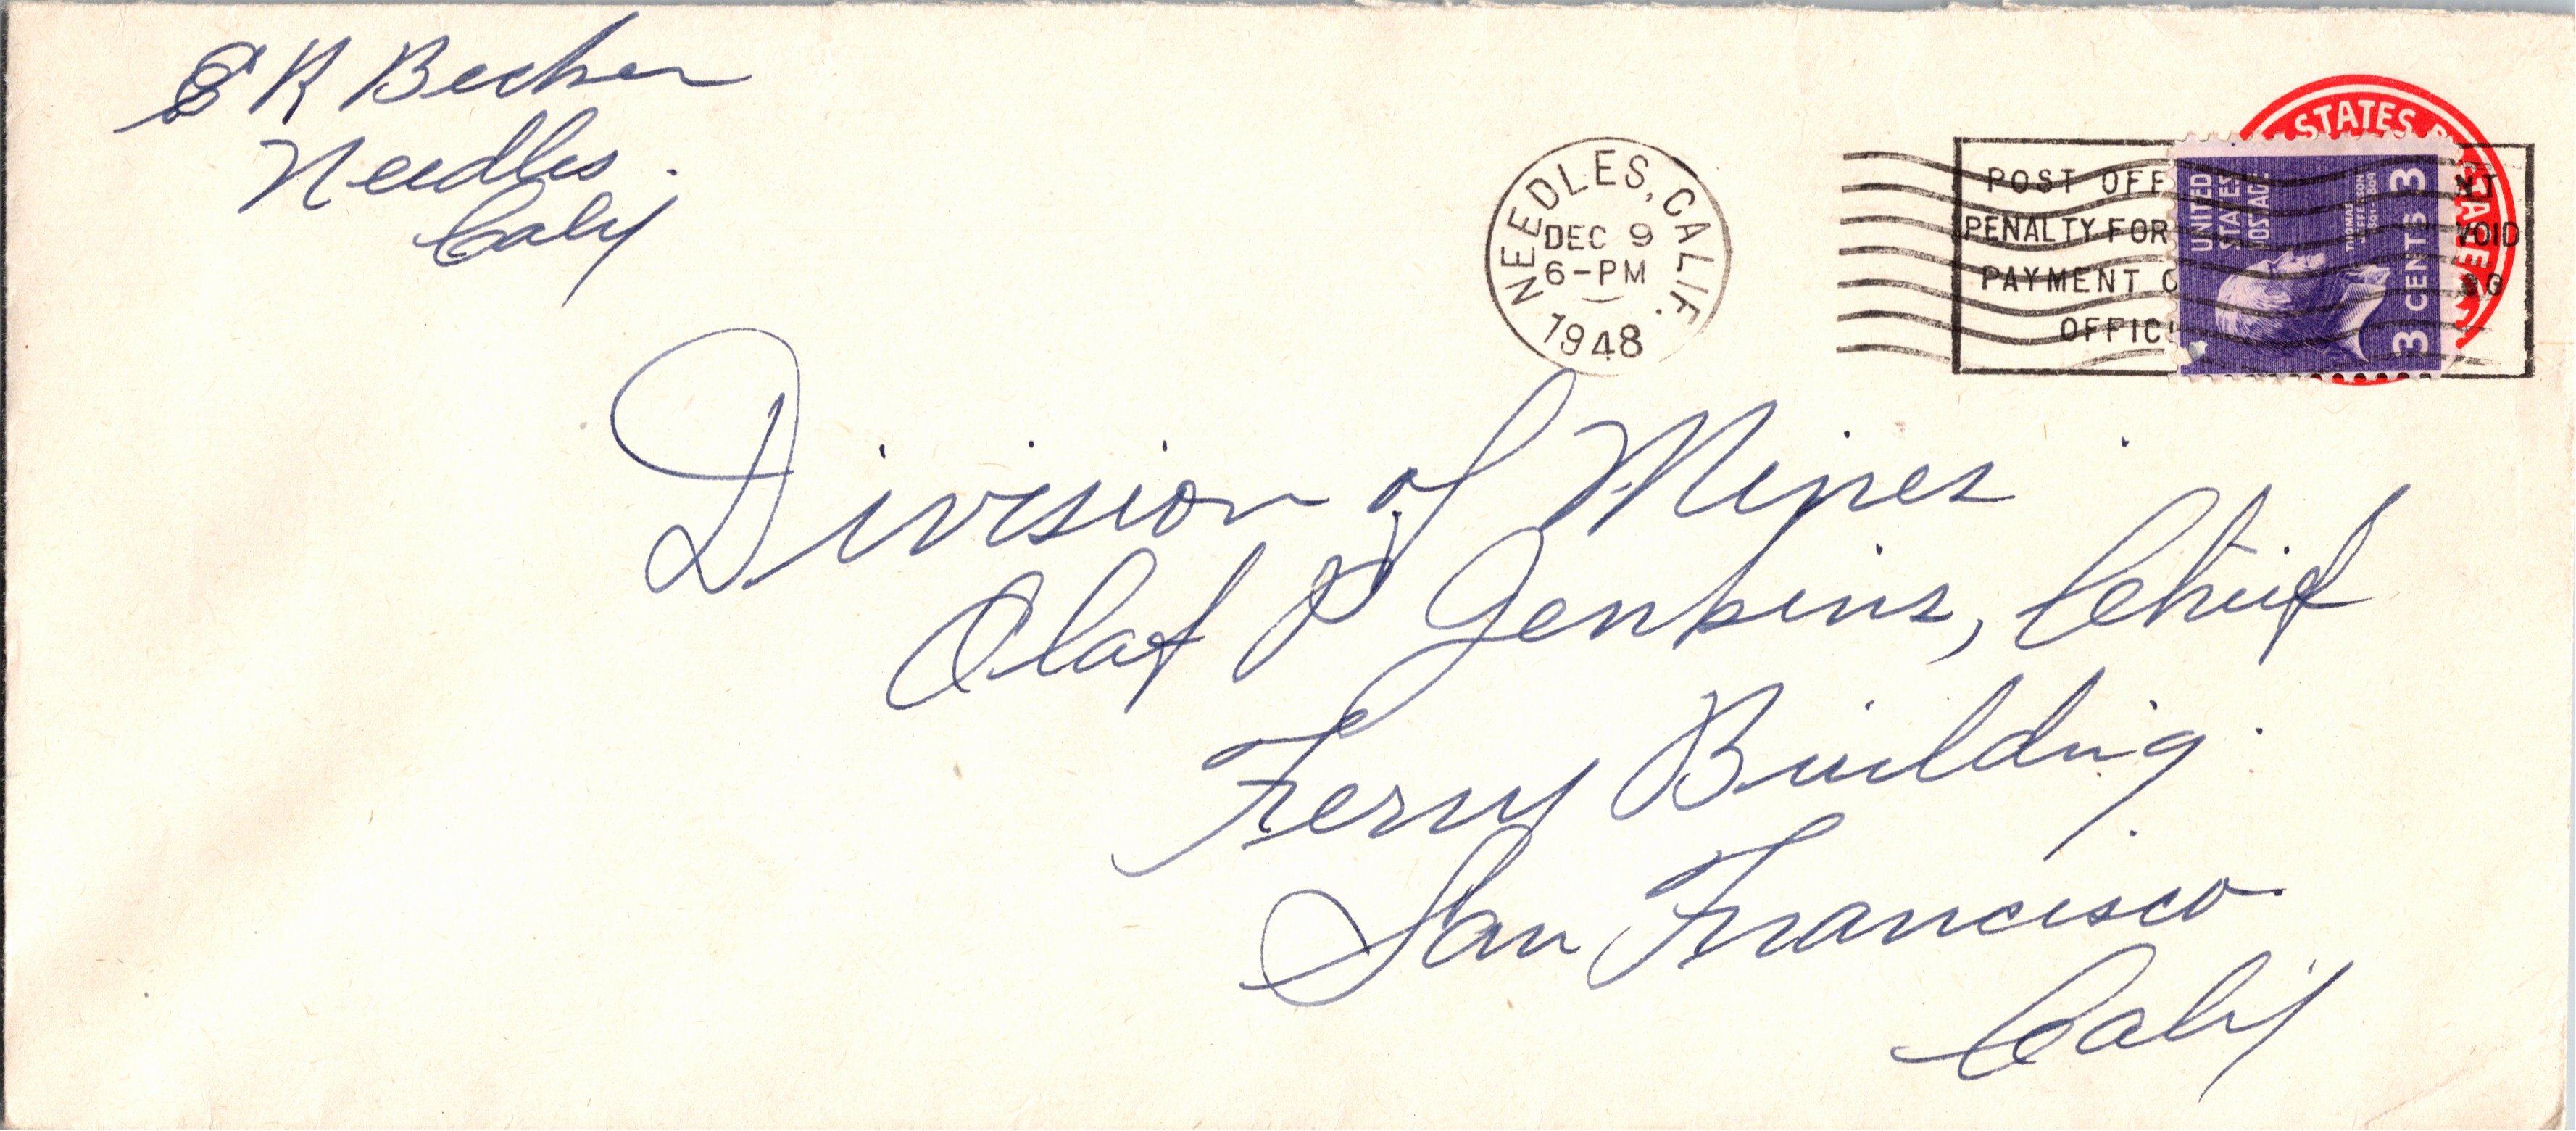 E R Becker
Needles.
Calif
NEEDLES, CALIF.
DEC 9
6-PM
1948
POST OFF NT
PENALTY FOR VOID
PAYMENT 00
OFFIC
STATES
UNITED
STATES
POSTAGE
THOMAS
JEFFERSON
1801-1809
3 CENTS 3
Division of Mines
Olaf P Jenkins, Chief
Ferry Building.
San Francisco.
Calif